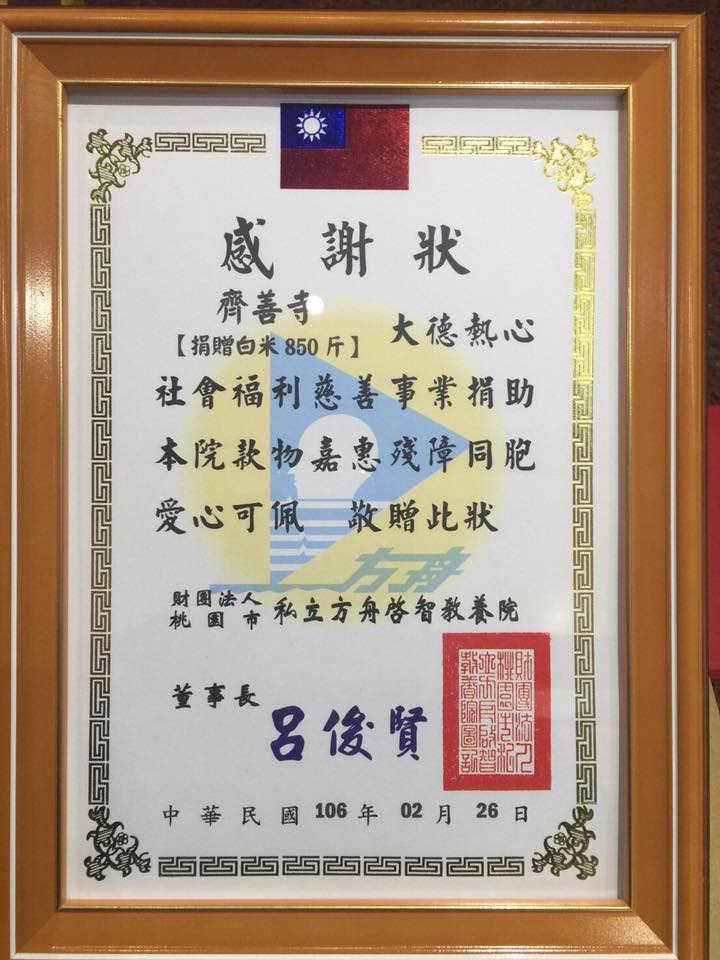 感謝狀
齊善寺
【捐贈白米850斤】
大德熱心
社會福利慈善事業捐助
本院款物嘉惠殘障同胞
愛心可佩　敬贈此狀
方舟
財團法人
桃園市
私立方舟啓智教養院
董事長
呂俊賢
財團法人
桃園市私
立方舟啟智
教養院圖記
中華民國106年02月26日